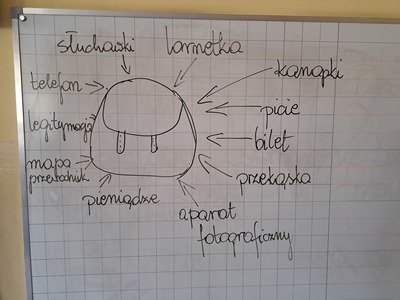 słuchawki
lornetka
telefon
kanapki
picie
legitymacja
bilet
mapa
przewodnik
przekąska
pieniądze
aparat
fotograficzny